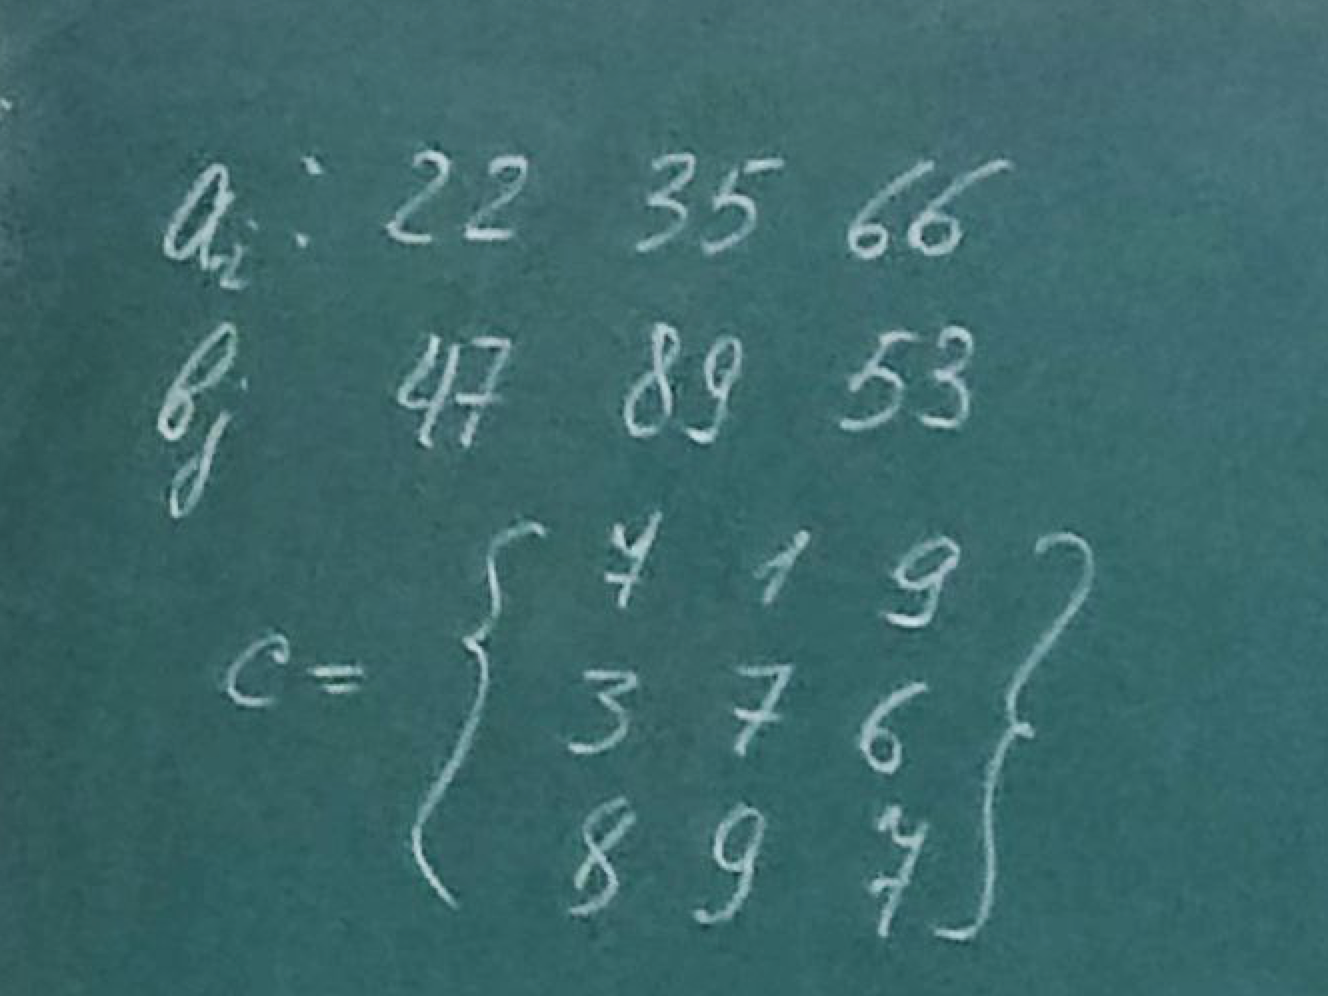 a_i: 22 35 66
b_j 47 89 53
c = { 7 1 9
3 7 6
8 9 7 }